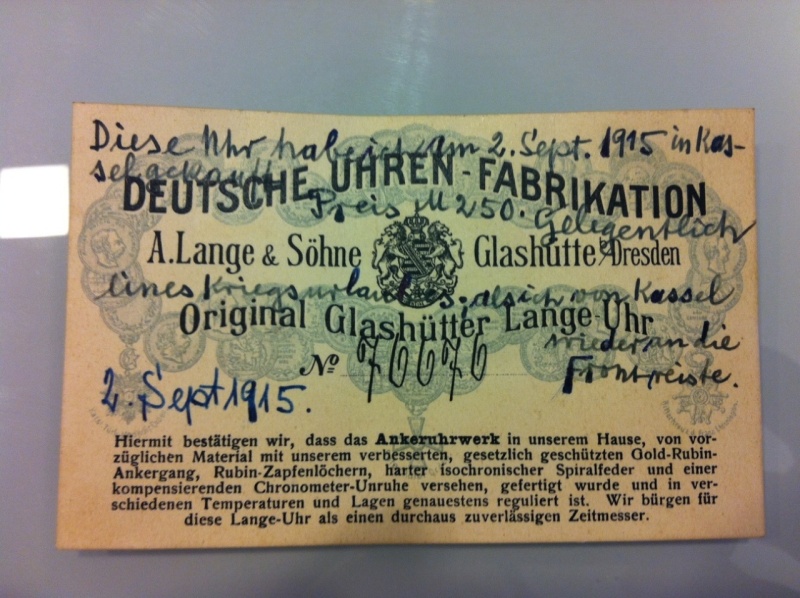 Diese Uhr habe ich am 2. Sept. 1915 in Kas-
sel gekauft.
DEUTSCHE UHREN-FABRIKATION
Preis M 250. Gelegentlich
A. Lange & Söhne Glashütte b/Dresden
eines Kriegsurlaubes, als ich von Kassel
Original Glashütter Lange-Uhr
wieder an die
No 76676
Front reiste.
2. Sept 1915.
Hiermit bestätigen wir, dass das Ankeruhrwerk in unserem Hause, von vor-
züglichen Material mit unserem verbesserten, gesetzlich geschützten Gold-Rubin-
Ankergang, Rubin-Zapfenlöchern, harter isochronischer Spiralfeder und einer
kompensierenden Chronometer-Unruhe versehen, gefertigt wurde und in ver-
schiedenen Temperaturen und Lagen genauestens reguliert ist. Wir bürgen für
diese Lange-Uhr als einen durchaus zuverlässigen Zeitmesser.